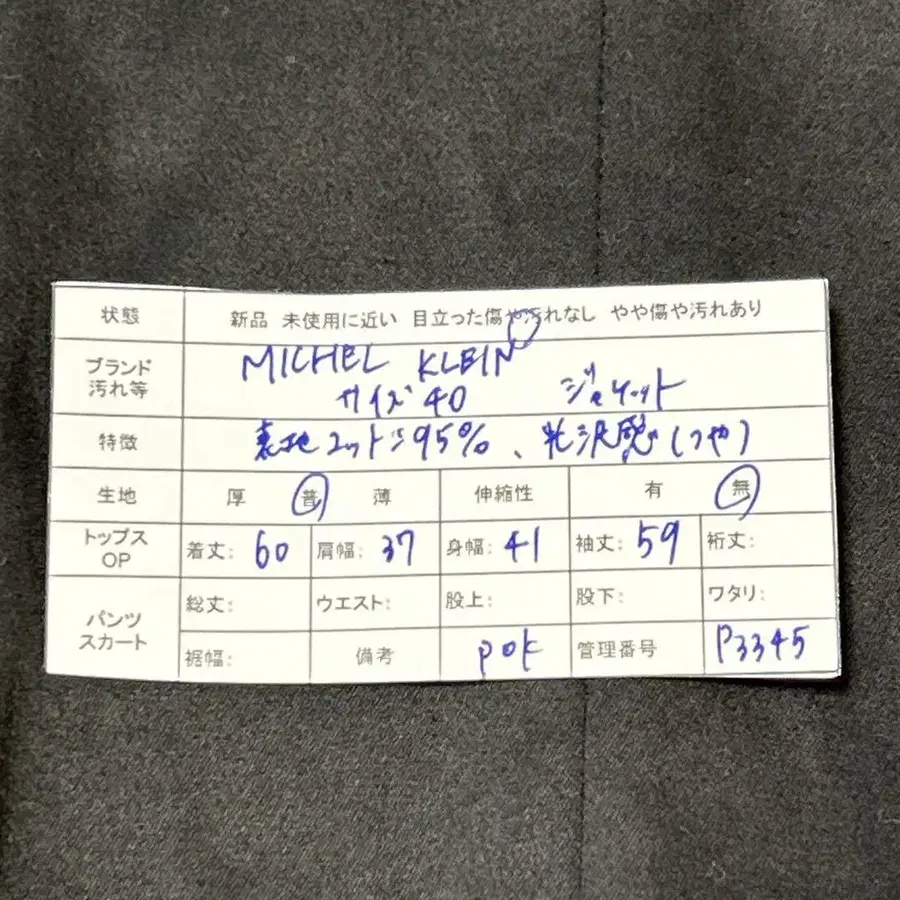 状態 新品 未使用に近い 目立った傷や汚れなし やや傷や汚れあり
ブランド
汚れ等
MICHEL KLEIN
サイズ40 ジャケット
特徴 表地コットン95%、光沢感(つや)
生地 厚 普 薄 伸縮性 有 無
トップス
OP
着丈: 60 肩幅: 37 身幅: 41 袖丈: 59 裄丈:
パンツ
スカート
総丈: ウエスト: 股上: 股下: ワタリ:
裾幅: 備考 POK 管理番号 P3345